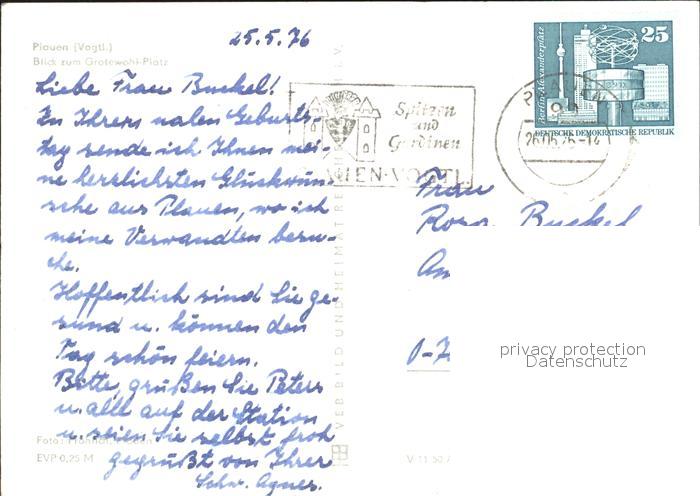 25.5.76
Plauen (Vogtl.)
Blick zum Grotewohl-Platz
Liebe Frau Buckel!
Zu Ihrem nalen Geburts-
tag sende ich Ihnen mei-
ne herzlichsten Glückwün-
sche aus Plauen, wo ich
meine Verwandten besu-
che.
Hoffentlich sind Sie ge-
sund u. können den
Tag schön feiern.
Bitte, grüßen Sie Peters
u. alle auf der Station
u. seien Sie selbst froh
gegrüßt von Ihrer
Schw. Agnes.
Foto:
EVP 0,25 M
VEB BILD UND HEIMAT
V 11 50
Spitzen
und
Gardinen
UEN-VOGTL
25
Berlin-Alexanderplatz
DEUTSCHE DEMOKRATISCHE REPUBLIK
Frau
Rosa Buckel
An
privacy protection
Datenschutz